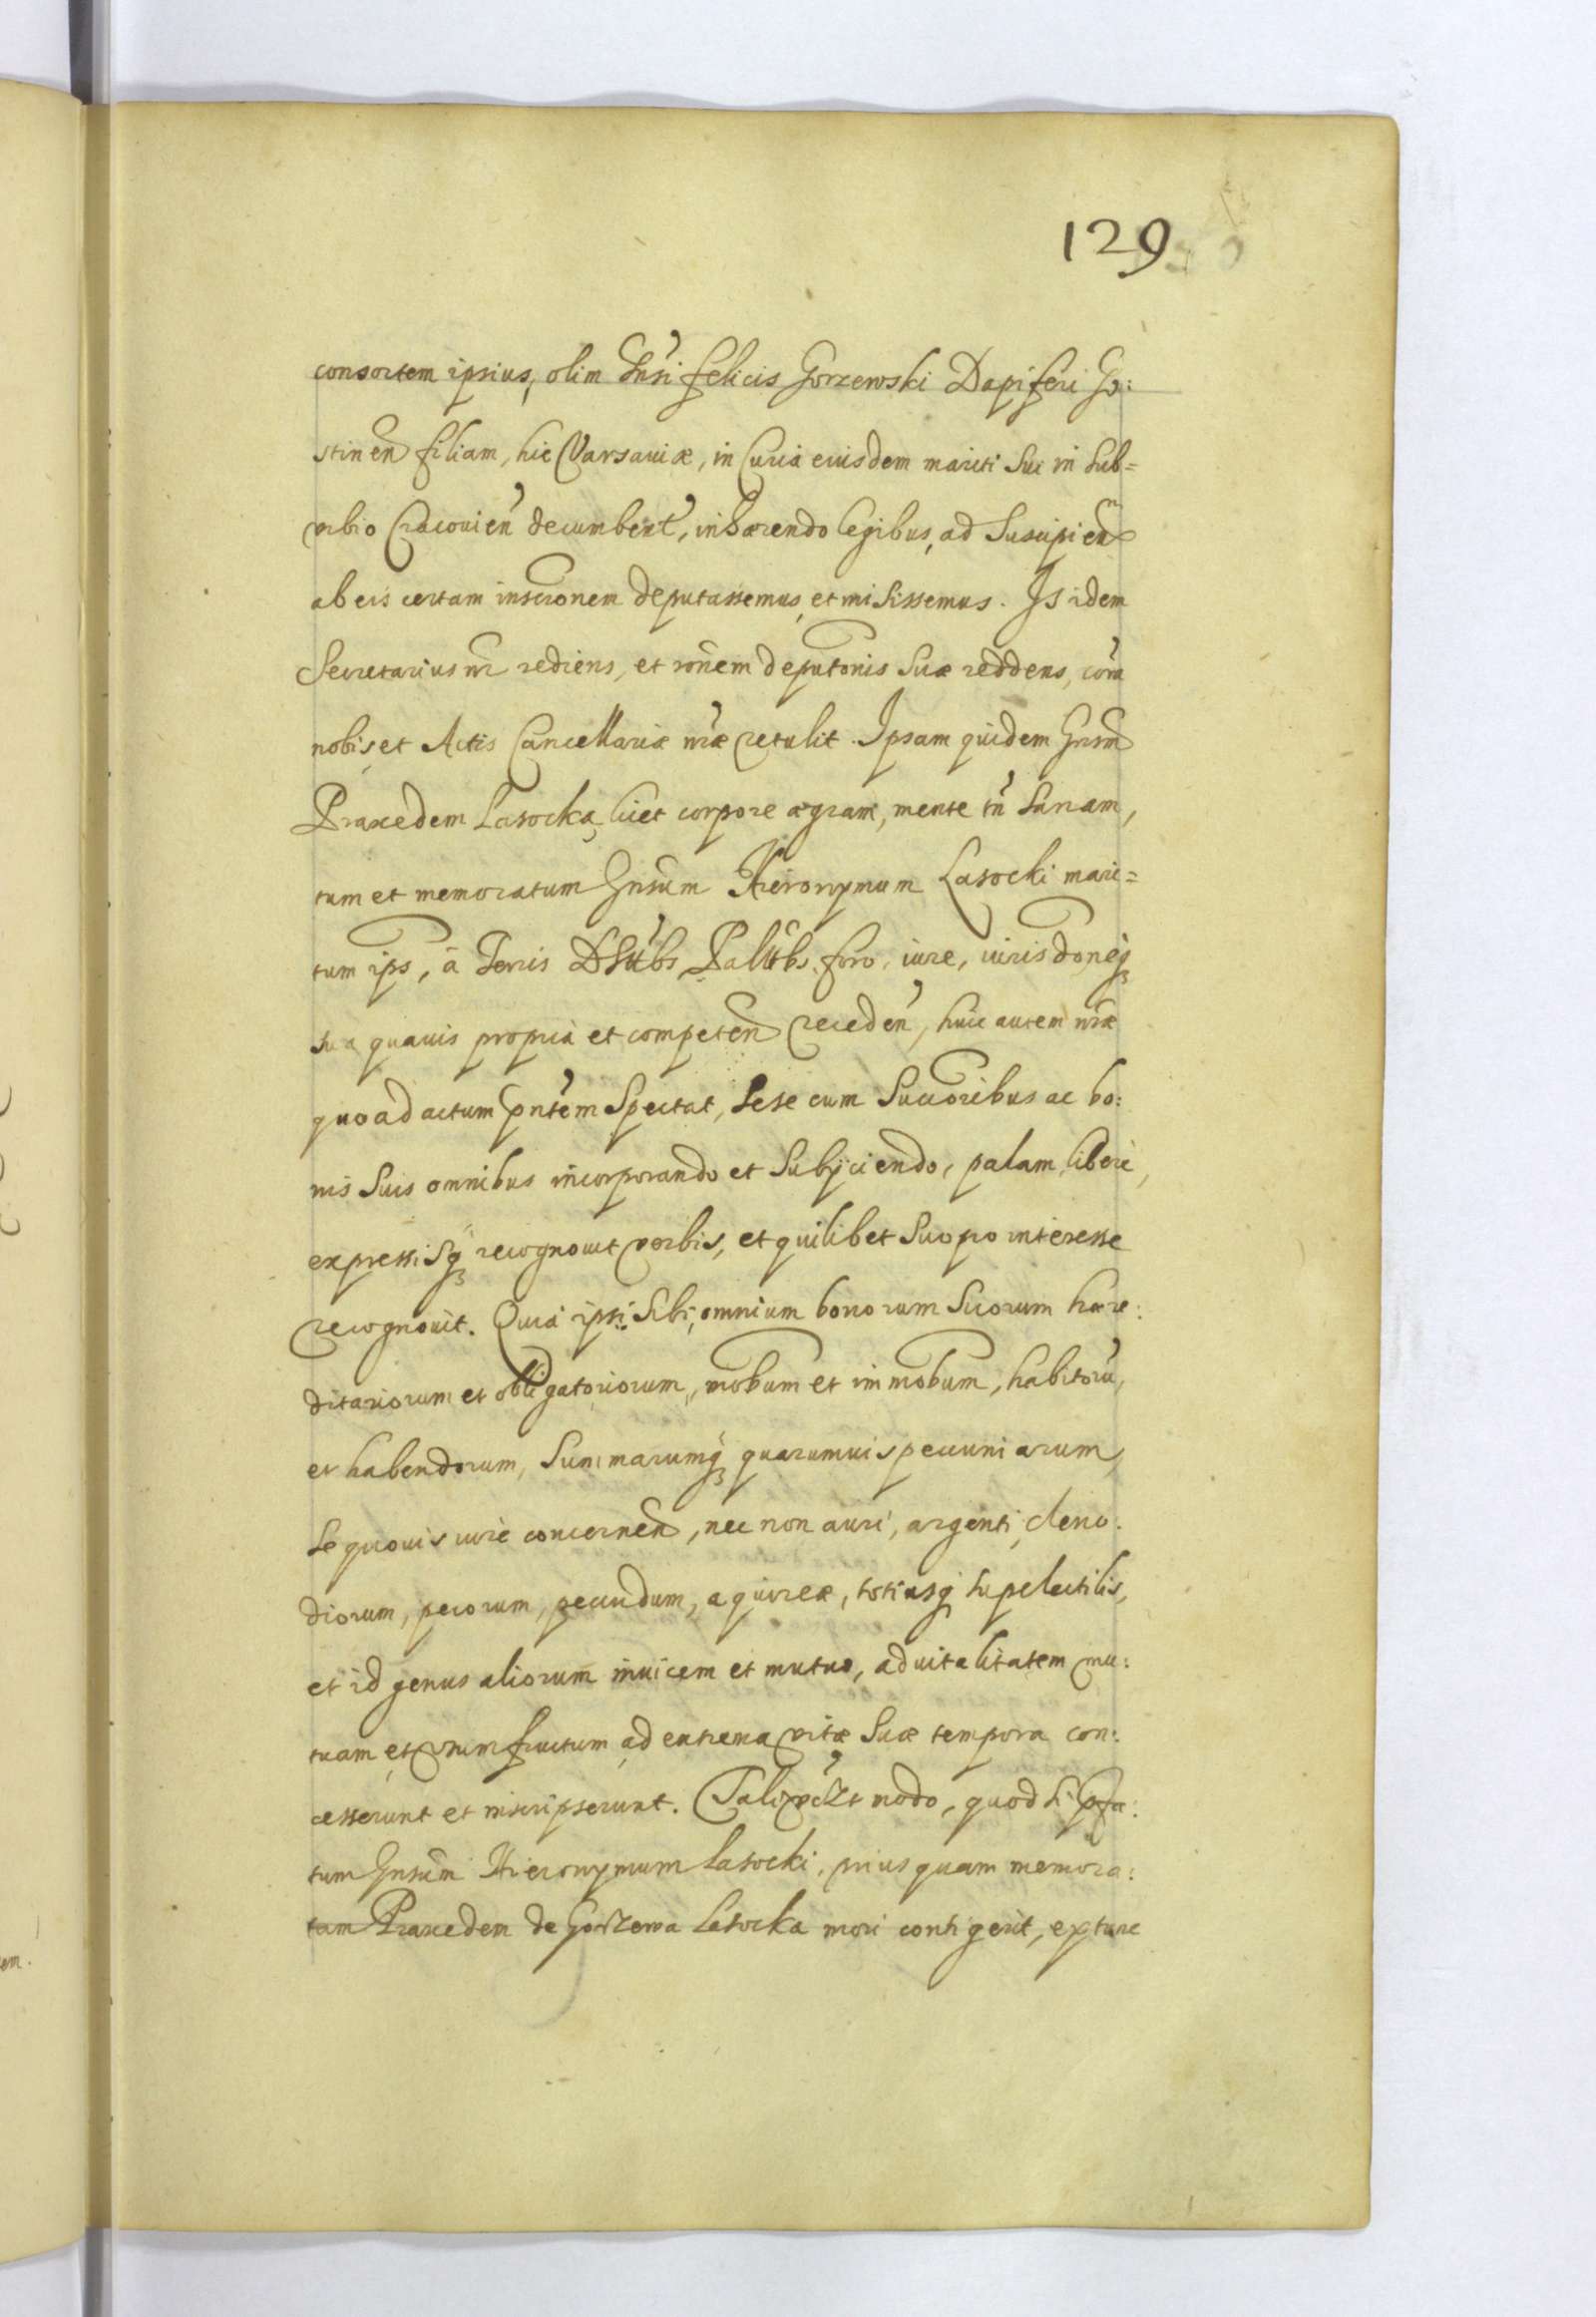 129
consortem ipsius, olim Gnsi Felicis Gorzewski Dapiferi Go:
stinen filiam, hic Varsauiæ, in Curia eiusdem mariti sui in Sub=
vrbio Cracouien decumbent, inhærendo legibus, ad Suscipien
ab eis certam inscronem deputassemus, et misissemus. Is idem
Secretarius nr rediens, et ronem deputonis suæ reddens, cora
nobis, et Actis Cancellariæ nræ retulit. Ipsam quidem Gnsm
Praxedem Lasocka, licet corpore ægram, mente tn sanam,
tum et memoratum Gnsum Hieronymum Lasocki mari=
tum ips, à Terris Dstibs Palbs, foro, iure, iurisdoneq
sua quauis propria et competen receden, huic autem nræ
quoad actum pntem Spectat, sese cum Succoribus ac bo:
nis suis omnibus incorporando et Subijciendo, palam, liberè,
expressisq recognouit verbis, et quilibet suo pro interesse
recognouit. Quia ipsi Sibi, omnium bonorum suorum hære:
ditariorum et obligatoriorum, mobum et immobum, habitoru,
et habendorum, Summarumq quarumuis pecuniarum,
se quouis iure concernen, nec non auri, argenti, cleno:
diorum, pecorum, pecudum, æquireæ, totiusq supelectilis,
et id genus aliorum inuicem et mutuo, aduitalitatem mu:
tuam et vsumfructum ad extrema vitæ suæ tempora con:
cesserunt et inscripserunt. Tali vclzt modo, quod si pfa:
tum Gnsum Hieronymum Lasocki, priusquam memora:
tam Praxedem de Gorzewa Lasocka mori contigerit, ex tunc